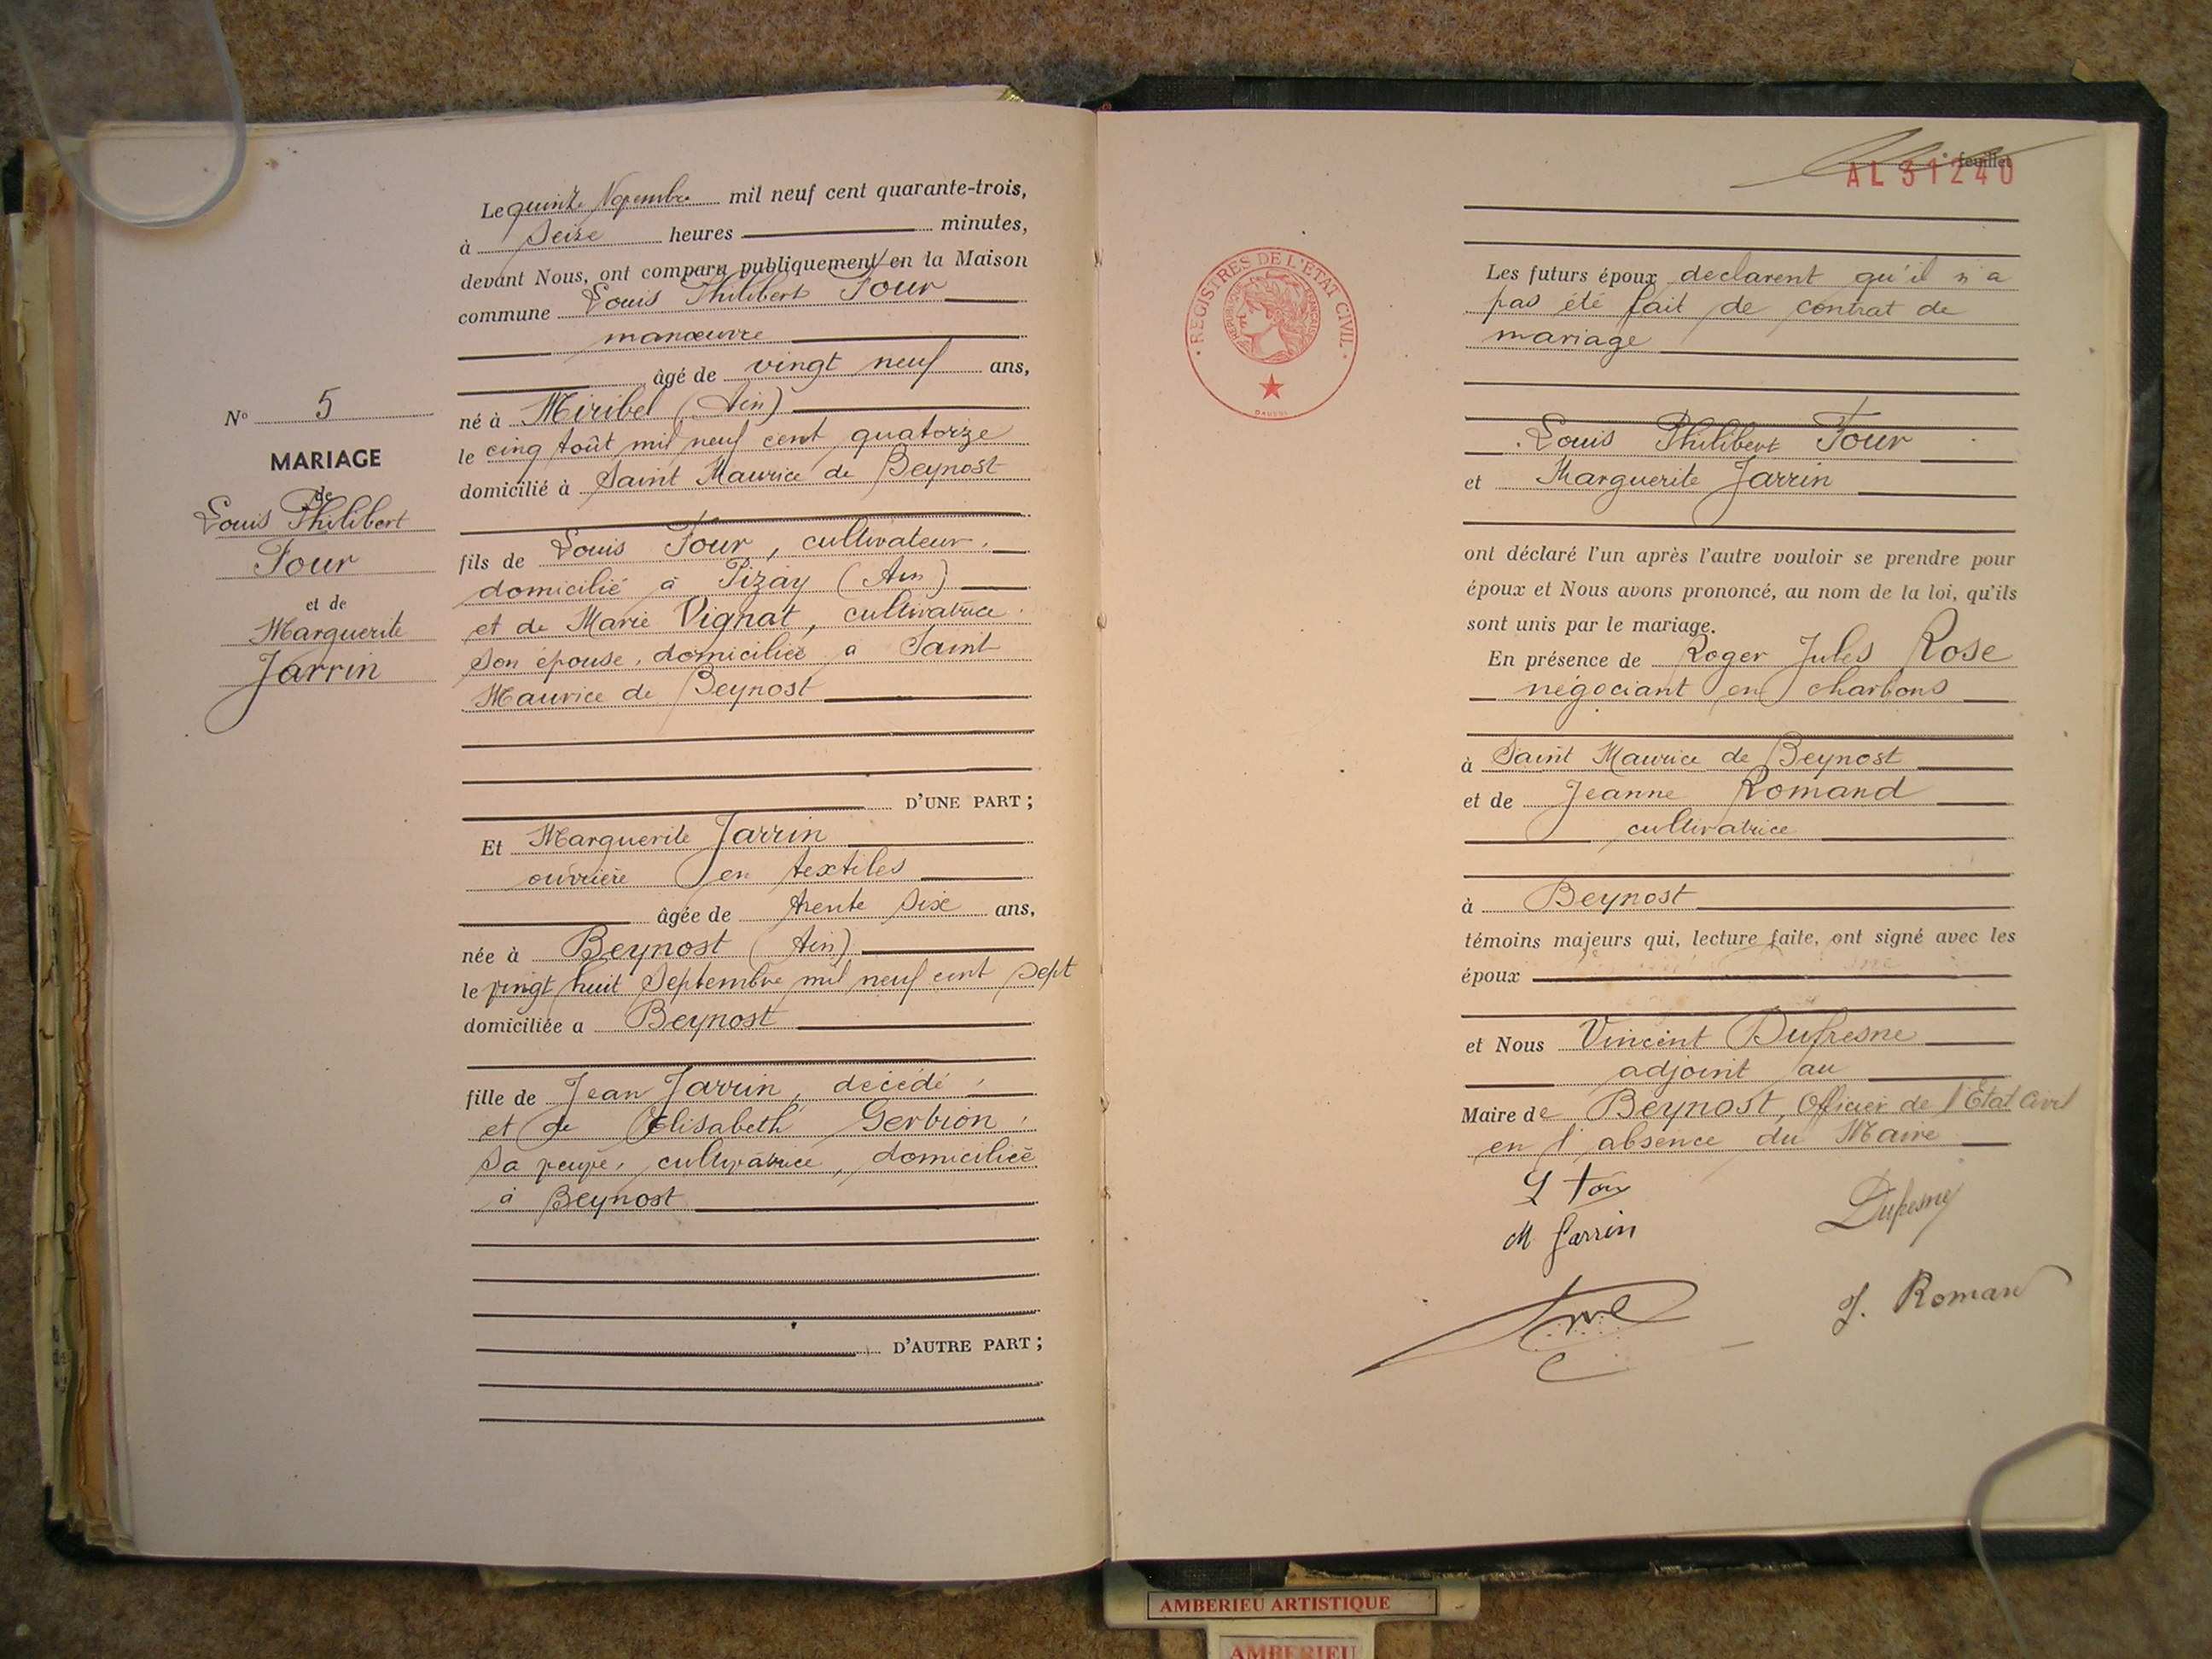 Le quinze Novembre mil neuf cent quarante-trois,
à Seize heures minutes,
devant Nous, ont comparu publiquement en la Maison
commune Louis Philibert Four
manœuvre
âgé de vingt neuf ans,
né à Miribel (Ain)
le cinq Août mil neuf cent quatorze
domicilié à Saint Maurice de Beynost
fils de Louis Four, cultivateur,
domicilié à Pizay (Ain)
et de Marie Vignat, cultivatrice
son épouse, domiciliée à Saint
Maurice de Beynost
D'UNE PART ;
Et Marguerite Jarrin
ouvrière en textiles
âgée de trente six ans,
née à Beynost (Ain)
le vingt huit Septembre mil neuf cent sept
domiciliée a Beynost
fille de Jean Jarrin, décédé,
et de Elisabeth Gerbion,
sa veuve, cultivatrice, domiciliée
à Beynost
D'AUTRE PART ;
N° 5
MARIAGE
de
Louis Philibert
Four
et de
Marguerite
Jarrin
feuillet
AL 31240
REGISTRES DE L'ÉTAT CIVIL
Les futurs époux declarent qu'il n'a
pas été fait de contrat de
mariage
Louis Philibert Four
et Marguerite Jarrin
ont déclaré l'un après l'autre vouloir se prendre pour
époux et Nous avons prononcé, au nom de la loi, qu'ils
sont unis par le mariage.
En présence de Roger Jules Rose
négociant en charbons
à Saint Maurice de Beynost
et de Jeanne Romand
cultivatrice
à Beynost
témoins majeurs qui, lecture faite, ont signé avec les
époux
et Nous Vincent Dufresne
adjoint au
Maire de Beynost, Officier de l'Etat Civil
en l'absence du Maire
L Four
M Jarrin
Dufresne
J. Romand
AMBERIEU ARTISTIQUE
AMBERIEU